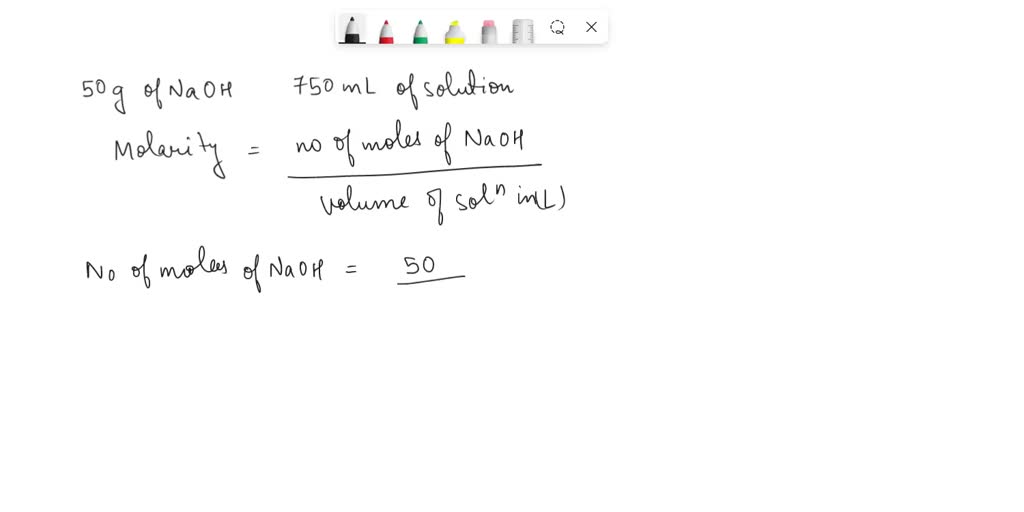 50g of NaOH 750 mL of solution
Molarity = no of moles of NaOH
volume of solⁿ in(L)
No of moles of NaOH = 50